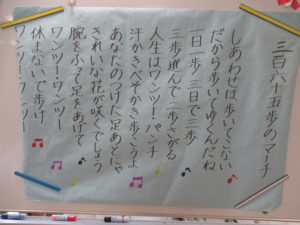 三百六十五歩のマーチ
しあわせは歩いてこない
だから歩いてゆくんだね
一日一歩 三日で三歩
三歩進んで二歩さがる
人生はワンツー・パンチ
汗かきべそかき歩こうよ
あなたのつけた足あとにゃ
きれいな花が咲くでしょう
腕をふって足をあげて
ワンツー・ワンツー
休まないで歩け
ワンツー・ワンツー